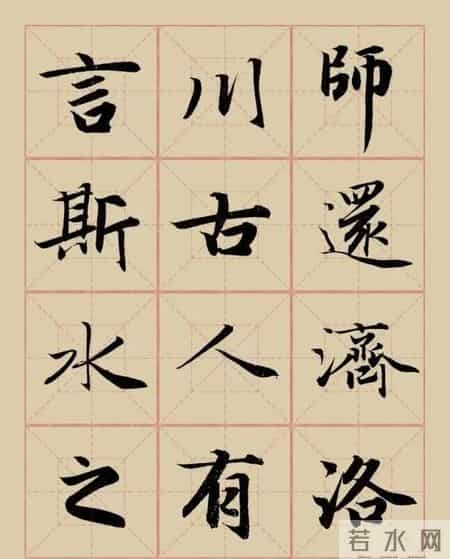 師還濟洛
川古人有
言斯水之
若水网